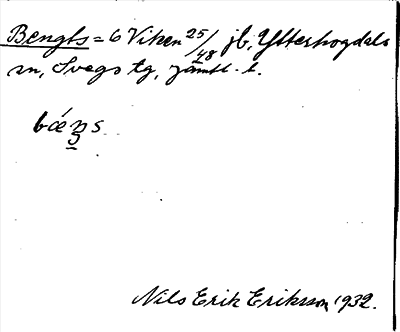 Bengts = 6 Viken 25/48 jb, Ytterhogdals
sn, Svegs tg, Jämtl. l.
bǽŋs
Nils Erik Eriksson 1932.